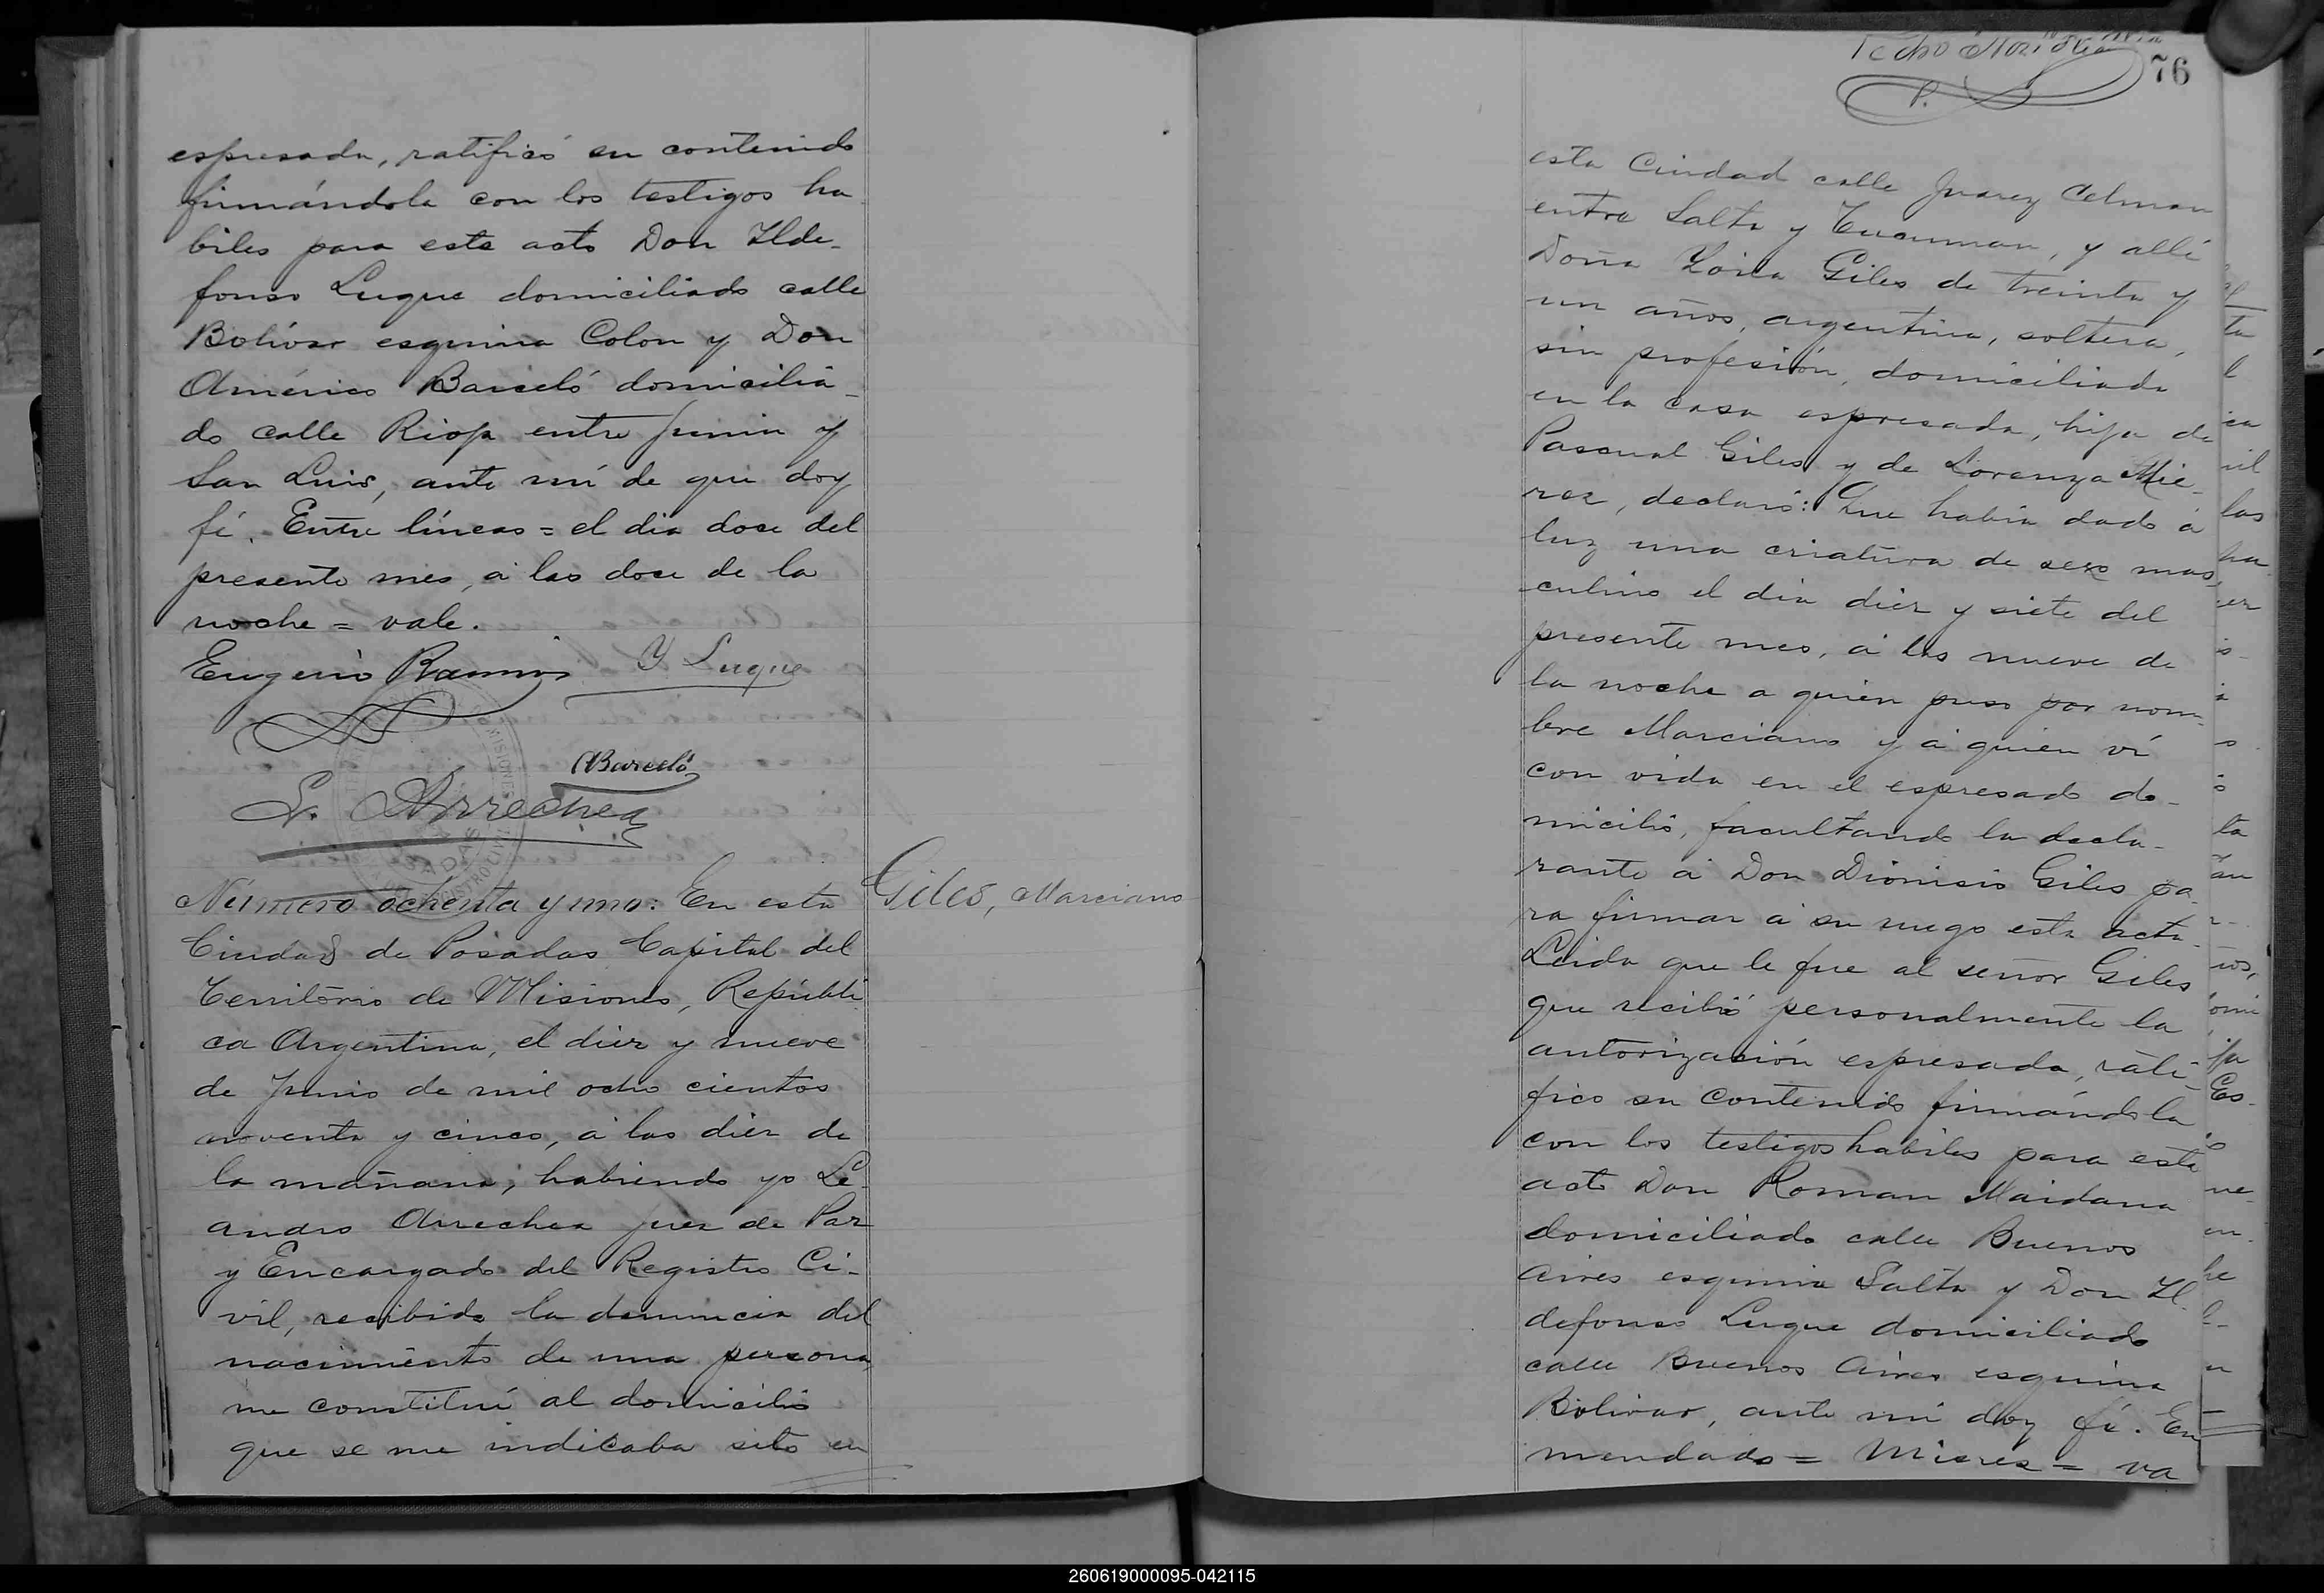 espresada, ratificó su contenido
firmándola con los testigos ha
biles para este acto Don Ilde-
fonso Luque domiciliado calle
Bolivar esquina Colon y Don
Américo Barceló domicilia-
do calle Rioja entre Junin y
San Luis, ante mí de que doy
fé. Entre líneas = el dia doce del
presente mes, á las doce de la
noche = vale.
Eugenio Ramos Y Luque
ABarceló
L. Arrechea
Número ochenta y uno: En esta
Giles, Marciano
Ciudad de Posadas Capital del
Territorio de Misiones, Repúbli
ca Argentina, el diez y nueve
de Junio de mil ocho cientos
noventa y cinco, á las diez de
la mañana; habiendo yo Le-
andro Arrechea Juez de Paz
y Encargado del Registro Ci-
vil, recibido la denuncia del
nacimiento de una persona,
me constituí al domicilio
que se me indicaba sito en
76
esta Ciudad calle Juarez Celman
entre Salta y Tucuman, y allí
Doña Zoila Giles de treinta y
un años, argentina, soltera,
sin profesión, domiciliada
en la casa espresada, hija de
Pascual Giles y de Lorenza Mie-
rez, declaró: Que habia dado á
luz una criatura de sexo mas
culino el dia diez y siete del
presente mes, á las nueve de
la noche a quien puso por nom-
bre Marciano y á quien ví
con vida en el espresado do-
micilio, facultando la decla-
rante á Don Dionisio Giles pa-
ra firmar á su ruego esta acta.
Leida que le fue al señor Giles
que recibió personalmente la
autorización espresada, rati-
fico su contenido firmándola
con los testigos habiles para este
acto Don Roman Maidana
domiciliado calle Buenos
Aires esquina Salta y Don Il
defonso Luque domiciliado
calle Buenos Aires esquina
Bolivar, ante mí doy fé. En
mendado = Mierez = va
260619000095-042115